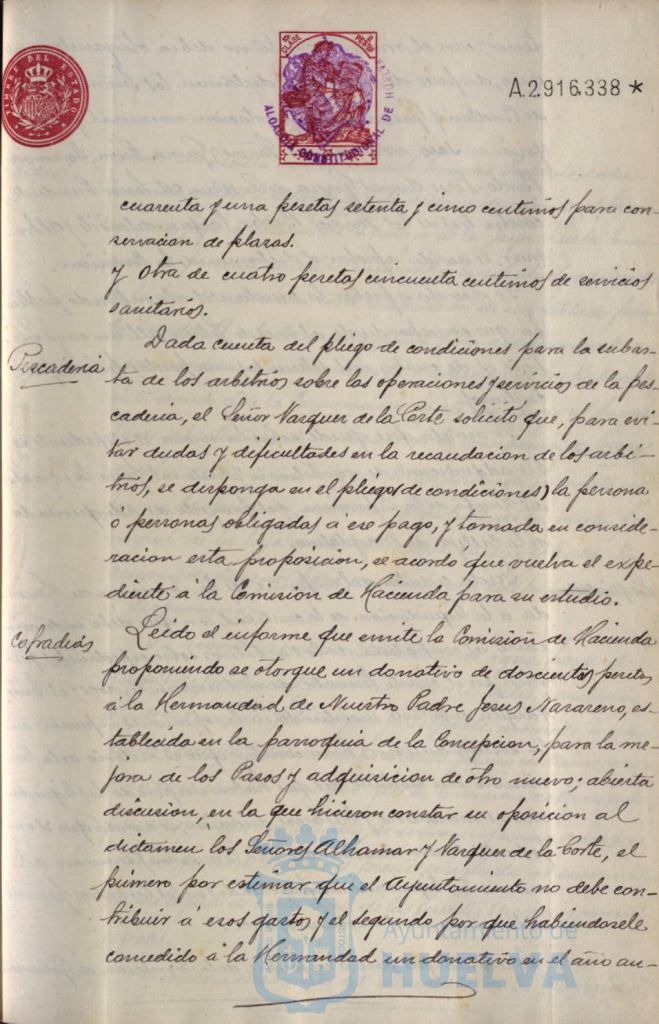 TIMBRE DEL ESTADO
CLASE
PESETAS
ALCALDIA CONSTITUCIONAL DE HUELVA
A.2.916.338 *
cuarenta y una pesetas setenta y cinco centimos para con-
servacion de plazas.
y otra de cuatro pesetas cincuenta centimos de servicios
sanitarios.
Pescaderia
Dada cuenta del pliego de condiciones para la subas-
ta de los arbitrios sobre las operaciones y servicios de la Pes-
caderia, el Señor Vazquez de la Corte solicitó que, para evi-
tar dudas y dificultades en la recaudacion de los arbi-
trios, se disponga en el pliego (de condiciones) la persona
ó personas obligadas á ese pago, y tomada en conside-
racion esta proposicion, se acordó que vuelva el expe-
diente á la Comision de Hacienda para su estudio.
Cofradias
Leido el informe que emite la Comision de Hacienda
proponiendo se otorgue un donativo de doscientas pesetas
á la Hermandad de Nuestro Padre Jesus Nazareno, es-
tablecida en la parroquia de la Concepcion, para la me-
jora de los Pasos y adquisicion de otro nuevo; abierta
discusion, en la que hicieron constar su oposicion al
dictamen los Señores Alhamar y Vazquez de la Corte, el
primero por estimar que el Ayuntamiento no debe con-
tribuir á esos gastos y el segundo por que habiendosele
concedido á la Hermandad un donativo en el año an-
Ayuntamiento de
HUELVA